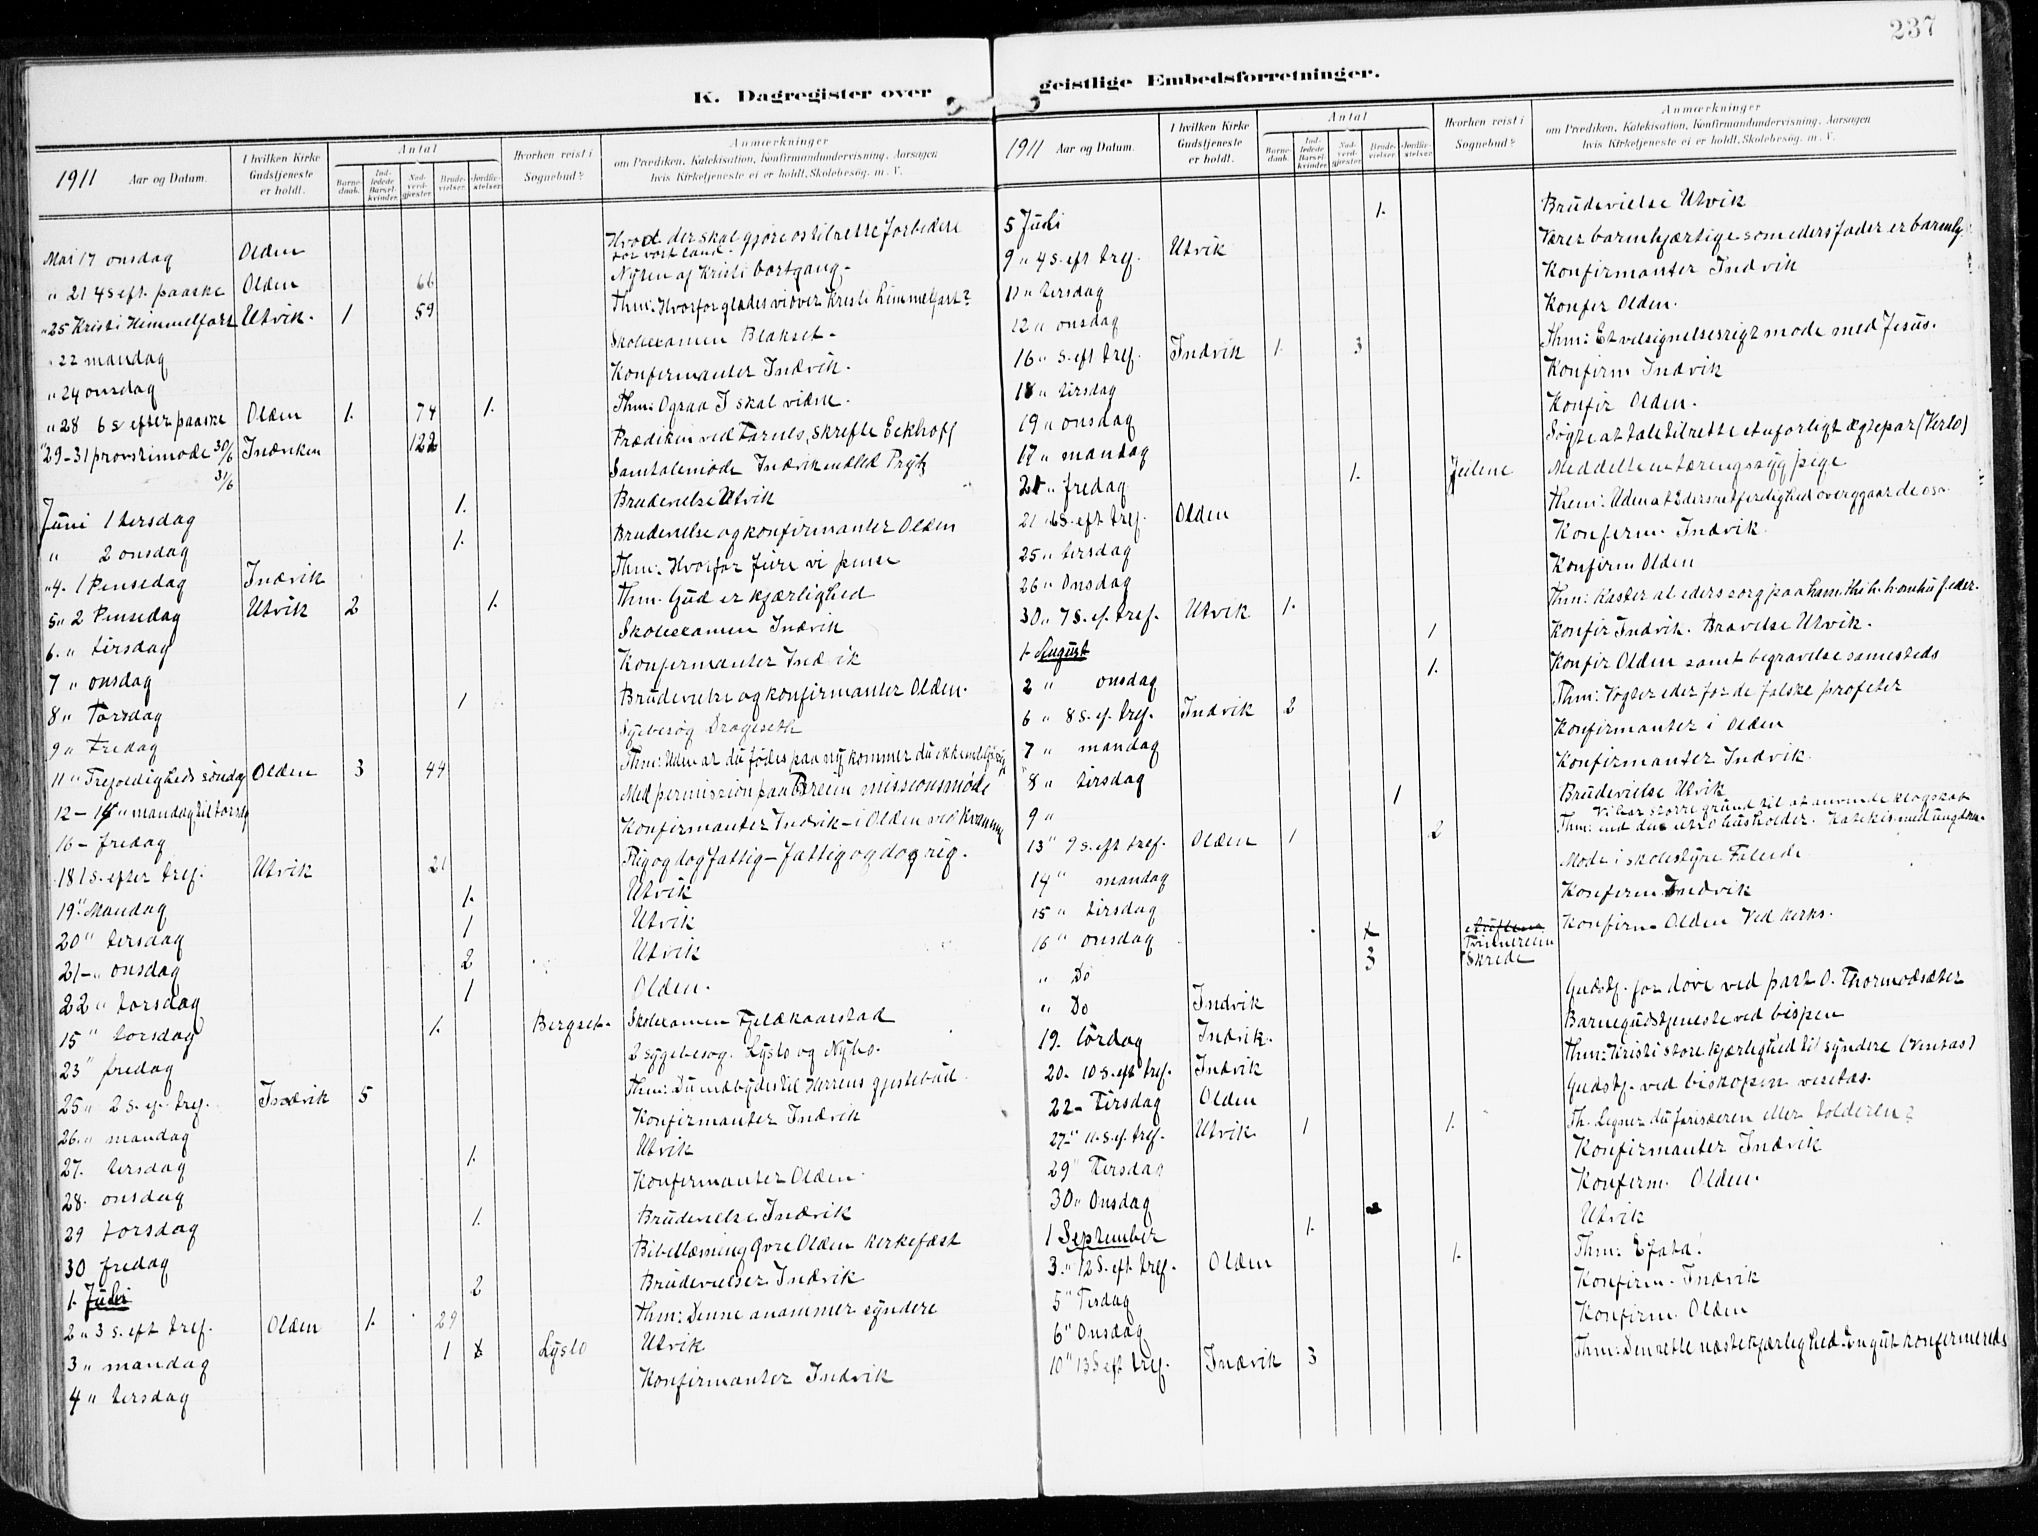 237
K. Dagregister over geistlige Embedsforretninger.
1911 Aar og Datum.
I hvilken Kirke Gudstjeneste er holdt.
Antal
Barnedaab.
Indledede Barselkvinder.
Nadverdgjester.
Brudevielser.
Jordfæstelser.
Hvorhen reist i Sognebud?
Anmærkninger
om Prædiken, Katekisation, Konfirmandundervisning, Aarsagen
hvis Kirketjeneste ei er holdt, Skolebesøg. m. V.
Mai 17 onsdag Olden Hvad der skal gjøre os tilrette forbedere for vort land.
" 21 4 s eft. paaske Olden 66 Nyten af Kristi bortgang.
" 25 Kristi Himmelfart Utvik. 1 59 Thm: Hvorfor glædes vi over Kristi himmelfart?
" 22 mandag Skolexamen Blakset.
" 24 onsdag Konfirmanter Indvik.
" 28 6 s efter paaske Olden 1. 74 1. Thm: Ogsaa I skal vidne.
" 29-31 provstimøde 30/6 Indviken 122 Prædiken ved Skrefte Eckhoff
31/6 Samtalemøde Indvik Prytz
Juni 1 tersdag 1. Brudevielse Utvik
" 2 onsdag 1. Brudevielse og konfirmanter Olden
" 4. 1 Pinsedag Indvik Thm: Hvorfor feire vi pinse
5 " 2 Pinsedag Utvik 2 1. Thm. Gud er kjærlighed
6. " tirsdag Skolexamen Indvik
7 " onsdag Konfirmanter Indvik
8 " Torsdag 1 Brudevielse og konfirmanter Olden.
9 " Fredag Sygebesøg Drageseth
11 " Trefoldigheds søndag Olden 3 44 Thm: Uden at du fødes paa ny kommer du ikke
12-14 " mandag til torsdag Med permission paa missionsmøde
16 - fredag Konfirmanter Indvik - i Olden ved Kvamme
18 1 s. efter tref. Utvik 21 Rig og dog fattig - fattig og dog rig.
19 " Mandag 1. Utvik
20 " tirsdag 1 Utvik
21 - " onsdag 2 Utvik
22 " torsdag 1 Olden.
15 " torsdag 1. Bergset. Skolexamen Fjelækaarstad
23 " fredag 2 sygebesøg. Lyslo og Nybø.
25 " 2 s. ef. tref. Indvik 5 Thm: Du indbydes til Herrens gjestebud.
26. " mandag Konfirmanter Indvik
27. tirsdag 1. Utvik
28. onsdag Konfirmanter Olden.
29 torsdag 1. Brudevielse Indvik
30 fredag Bibellæsning Øvre Olden kirkefæst
1. Juli 2 Brudevielser Indvik
2 " 3 s. eft tref. Olden 1. 29 Thm: Denne anammer syndere
3 " mandag 1 Lyslo Utvik
4 " tirsdag Konfirmanter Indvik
1911 Aar og Datum.
I hvilken Kirke Gudstjeneste er holdt.
Antal
Barnedaab.
Indledede Barselkvinder.
Nadverdgjester.
Brudevielser.
Jordfæstelser.
Hvorhen reist i Sognebud?
Anmærkninger
om Prædiken, Katekisation, Konfirmandundervisning, Aarsagen
hvis Kirketjeneste ei er holdt, Skolebesøg. m. V.
5 Juli 1. Brudevielse Utvik
9 " 4 s. eft tref. Utvik Værer barmhjærtige som eders fader er barmhj.
11 " tirsdag Konfirmanter Indvik
12 " onsdag Konfir Olden.
16 " 5 s. eft tref. Indvik 1. 3 Thm: Et velsignelsesrigt møde med Jesus.
18 " tirsdag Konfirm Indvik
19 " onsdag Konfir Olden.
17 " mandag Søgte at tale tilrette et uforligt ægtepar (Verlo)
21 " fredag 1. Jeilene Meddelte en tæringssyg pige
21 6 s. eft tref. Olden Them: Uden at Eders retferdighed overgaar de
25 " tirsdag Konfirm. Indvik
26 " Onsdag Konfirm Olden
30 " 7 s. ef. tref. Utvik 1. Thm: Kaster al eders sorg paa ham, thi h. h. omhu f. eder.
1. August 1 Konfir Indvik. Utvik.
2 " onsdag 1. Konfir Olden samt begravelse samesteds
6 " 8 s. ef. tref. Indvik 2 Thm: Vogter eder for de falske profeter
7 " mandag Konfirmanter i Olden
8 " tirsdag Konfirmanter Indvik.
9 " 1 Brudevielse Utvik
13 " 9 s. eft tref. Olden 1 2 Thm: Vi har større grund til at anvende klogskab end den utro husholder. Katekis. med ungdom.
14 " mandag Møde i skolestyre Faleide
15 " tirsdag Konfirm Indvik
16 " onsdag Konfirm Olden ved kirks.
" Do 3 Skrede
" Do Indvik Gudstj. for døve ved past O. Thormodsæter
19. lördag Indvik. Barnegudstjeneste ved bispen
20. 10 s. eft tref. Indvik Thm: Kristi store kjærlighed til syndere (visitas)
22 - tirsdag Olden Gudstj. ved biskopen visitas.
27 - " 11. s. ef. tref. Utvik 1 1. Th. Ligner du farisæeren eller tolderen?
29 " tirsdag Konfirmanter Indvik
30 " Onsdag Konfirm. Olden.
1 September 1. Utvik
3. " 12 s. eft. tref. Olden 1. Thm: Efata!
5 " Tisdag Konfirm. Indvik
6 " Onsdag Konfirm. Olden
10 " 13 s eft tref. Indvik 3 Thm: Den rette næstekjærlighed.